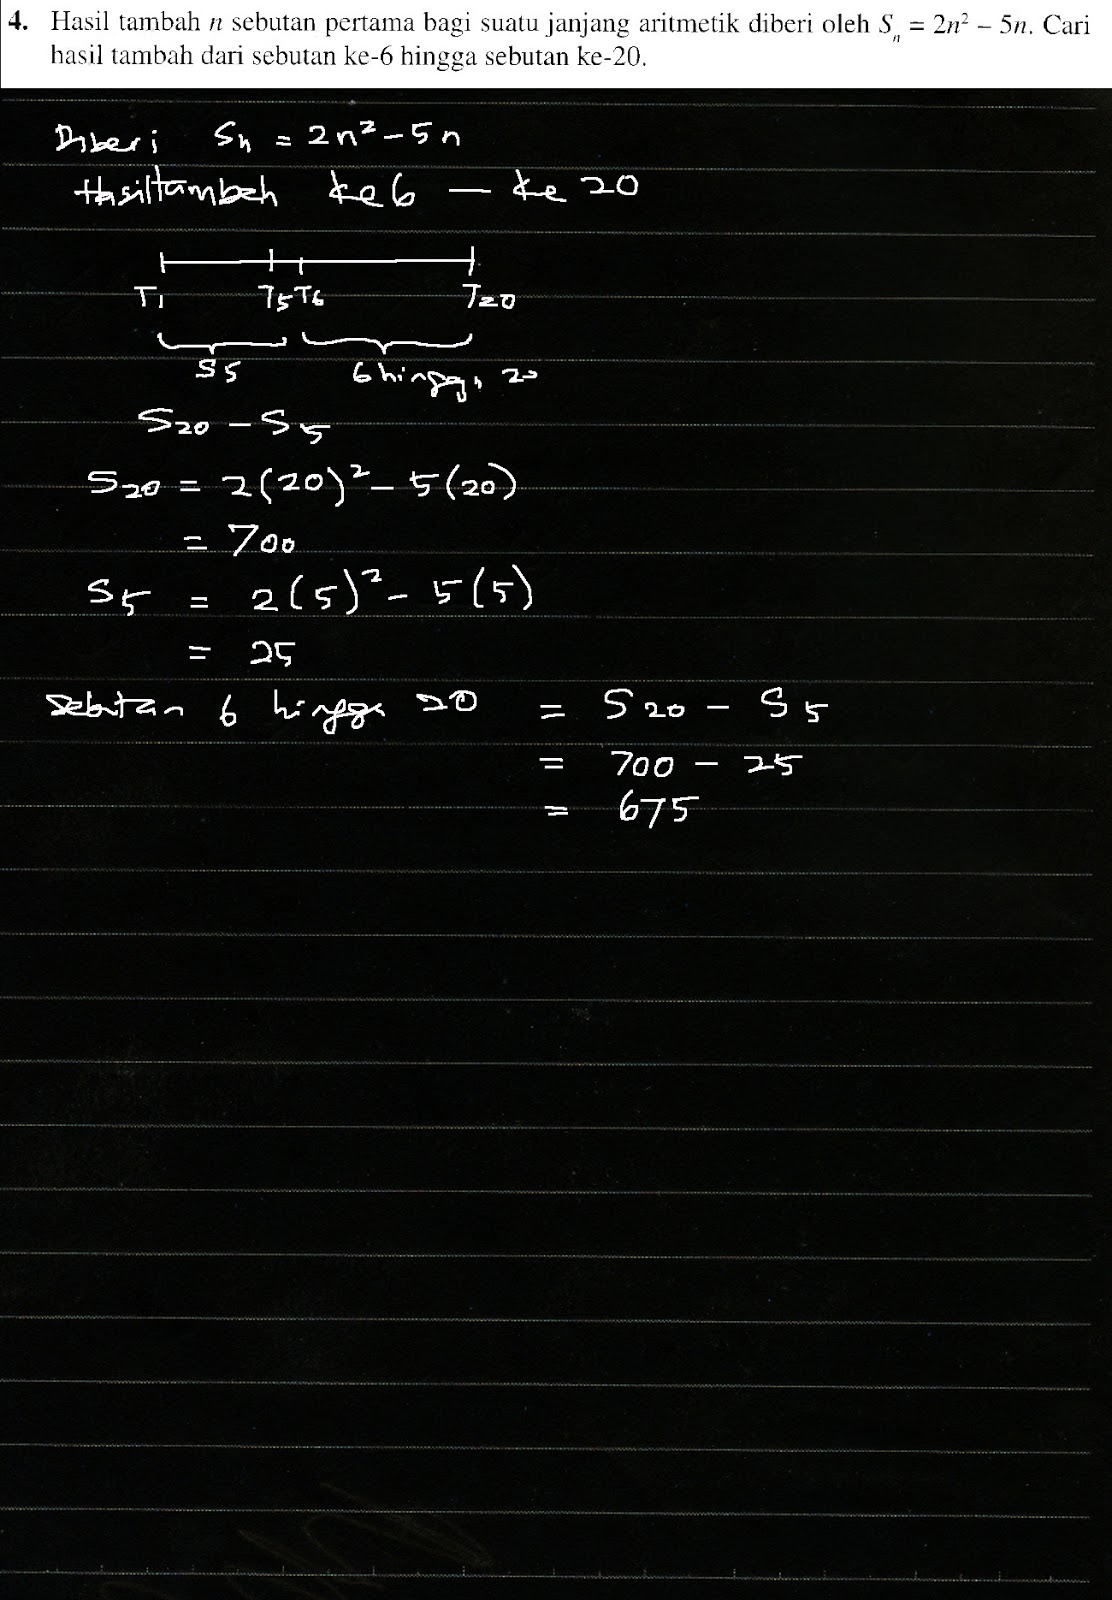 4. Hasil tambah n sebutan pertama bagi suatu janjang aritmetik diberi oleh Sₙ = 2n² – 5n. Cari
hasil tambah dari sebutan ke-6 hingga sebutan ke-20.
Diberi Sn = 2n² – 5n
Hasiltambah ke 6 — ke 20
T1 T5 T6 T20
S5 6 hingga 20
S20 – S5
S20 = 2(20)² – 5(20)
= 700
S5 = 2(5)² – 5(5)
= 25
sebutan 6 hingga 20 = S20 – S5
= 700 – 25
= 675